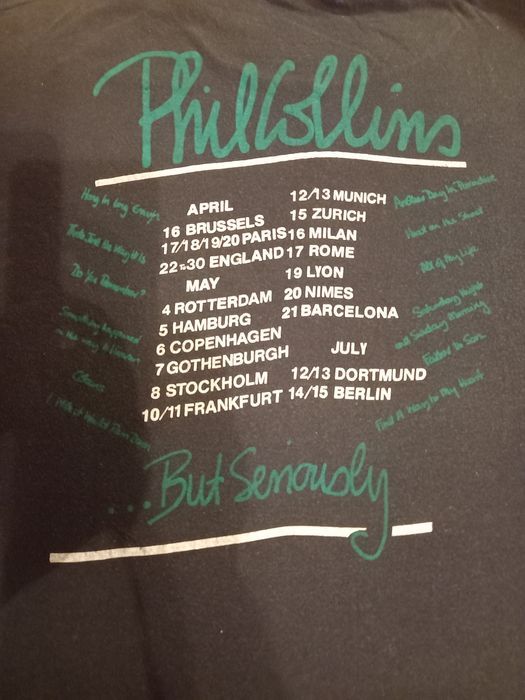 Phil Collins
Hang In Long Enough
That's Just the Way It Is
Do You Remember?
Something Happened
on the way to Heaven
Colours
I Wish it Would Rain Down
APRIL
16 BRUSSELS
17/18/19/20 PARIS
22-30 ENGLAND
MAY
4 ROTTERDAM
5 HAMBURG
6 COPENHAGEN
7 GOTHENBURGH
8 STOCKHOLM
10/11 FRANKFURT
12/13 MUNICH
15 ZURICH
16 MILAN
17 ROME
19 LYON
20 NIMES
21 BARCELONA
JULY
12/13 DORTMUND
14/15 BERLIN
Another Day In Paradise
Heat on the Street
All of My Life
Saturday Night
and Sunday Morning
Father to Son
Find A Way to My Heart
...But Seriously